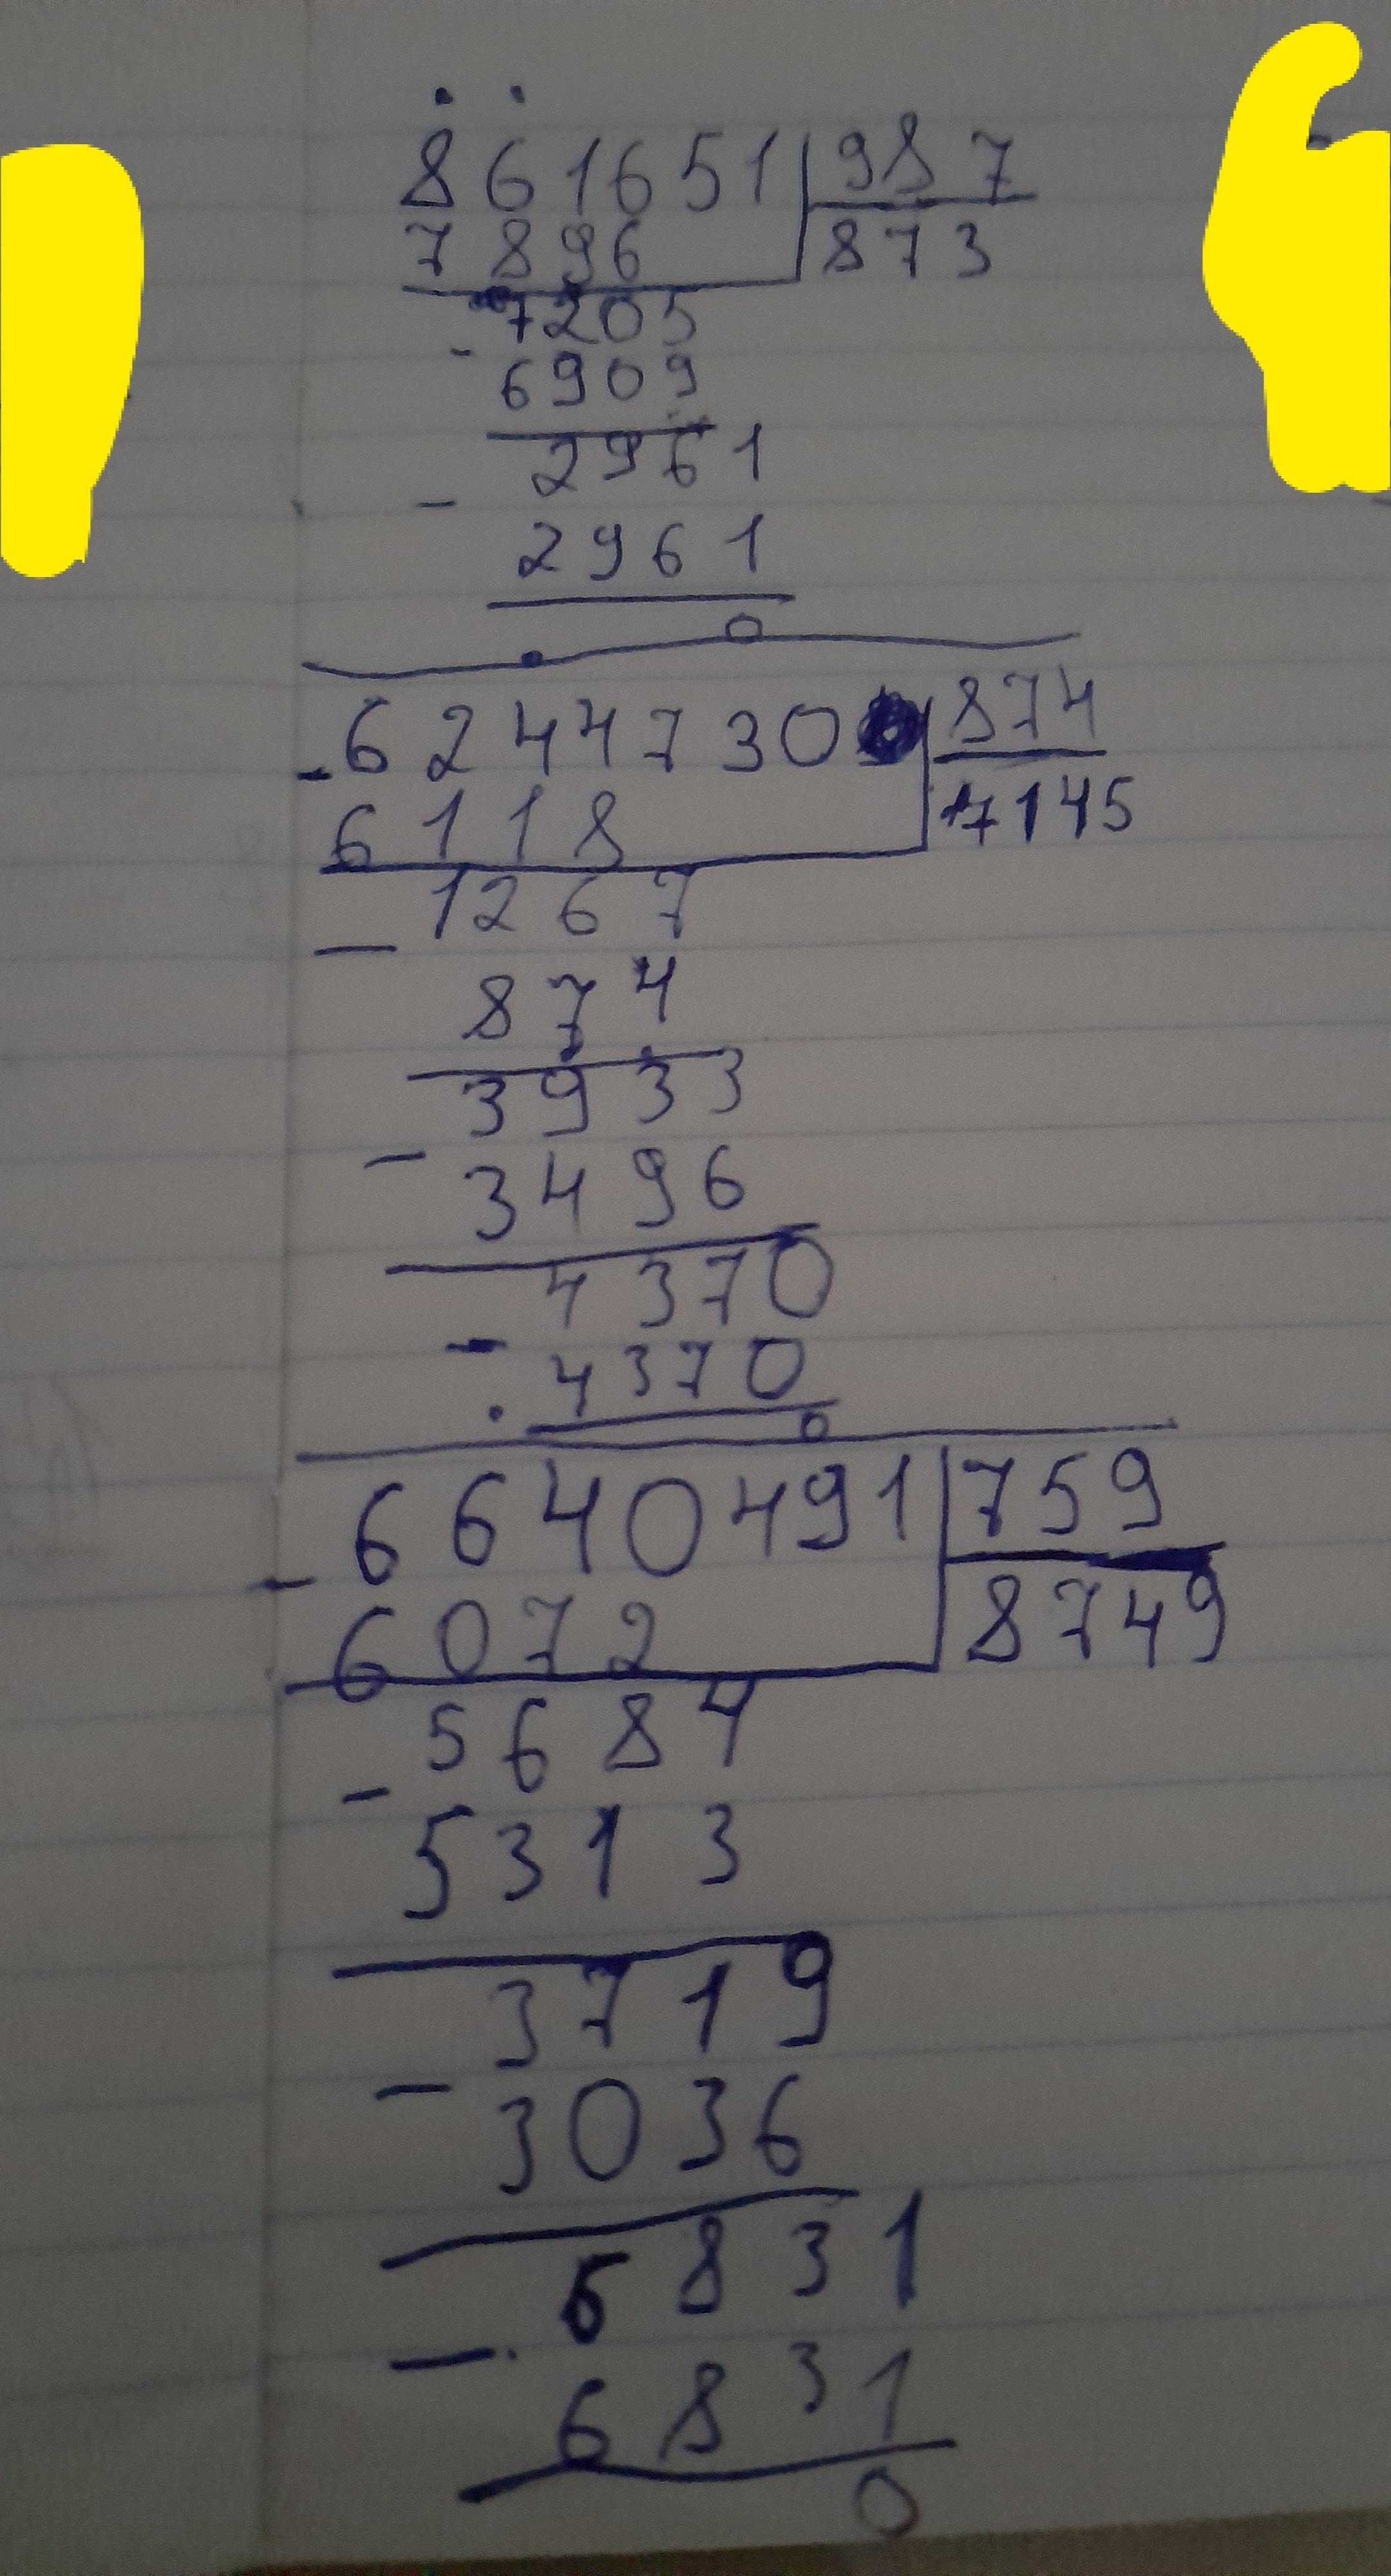 861651 987
7896 873
- 7205
6909
- 2961
2961
0
- 6244730 874
6118 7145
- 1267
874
3933
- 3496
4370
- 4370
0
- 6640491 759
6072 8749
5684
- 5313
3719
- 3036
6831
- 6831
0